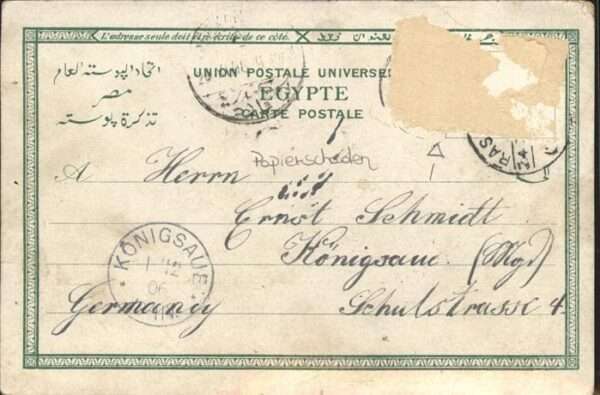 L'adresse seule doit être écrite de ce côté.
اتحاد البوسته العام
مصر
تذكرة بوسته
UNION POSTALE UNIVERSE
EGYPTE
CARTE POSTALE
Papierschäden
RAS
A Herrn
Ernst Schmidt
Königsaue (Mgr)
Germany Schulstrasse 4.
KÖNIGSAUE
1 12
06